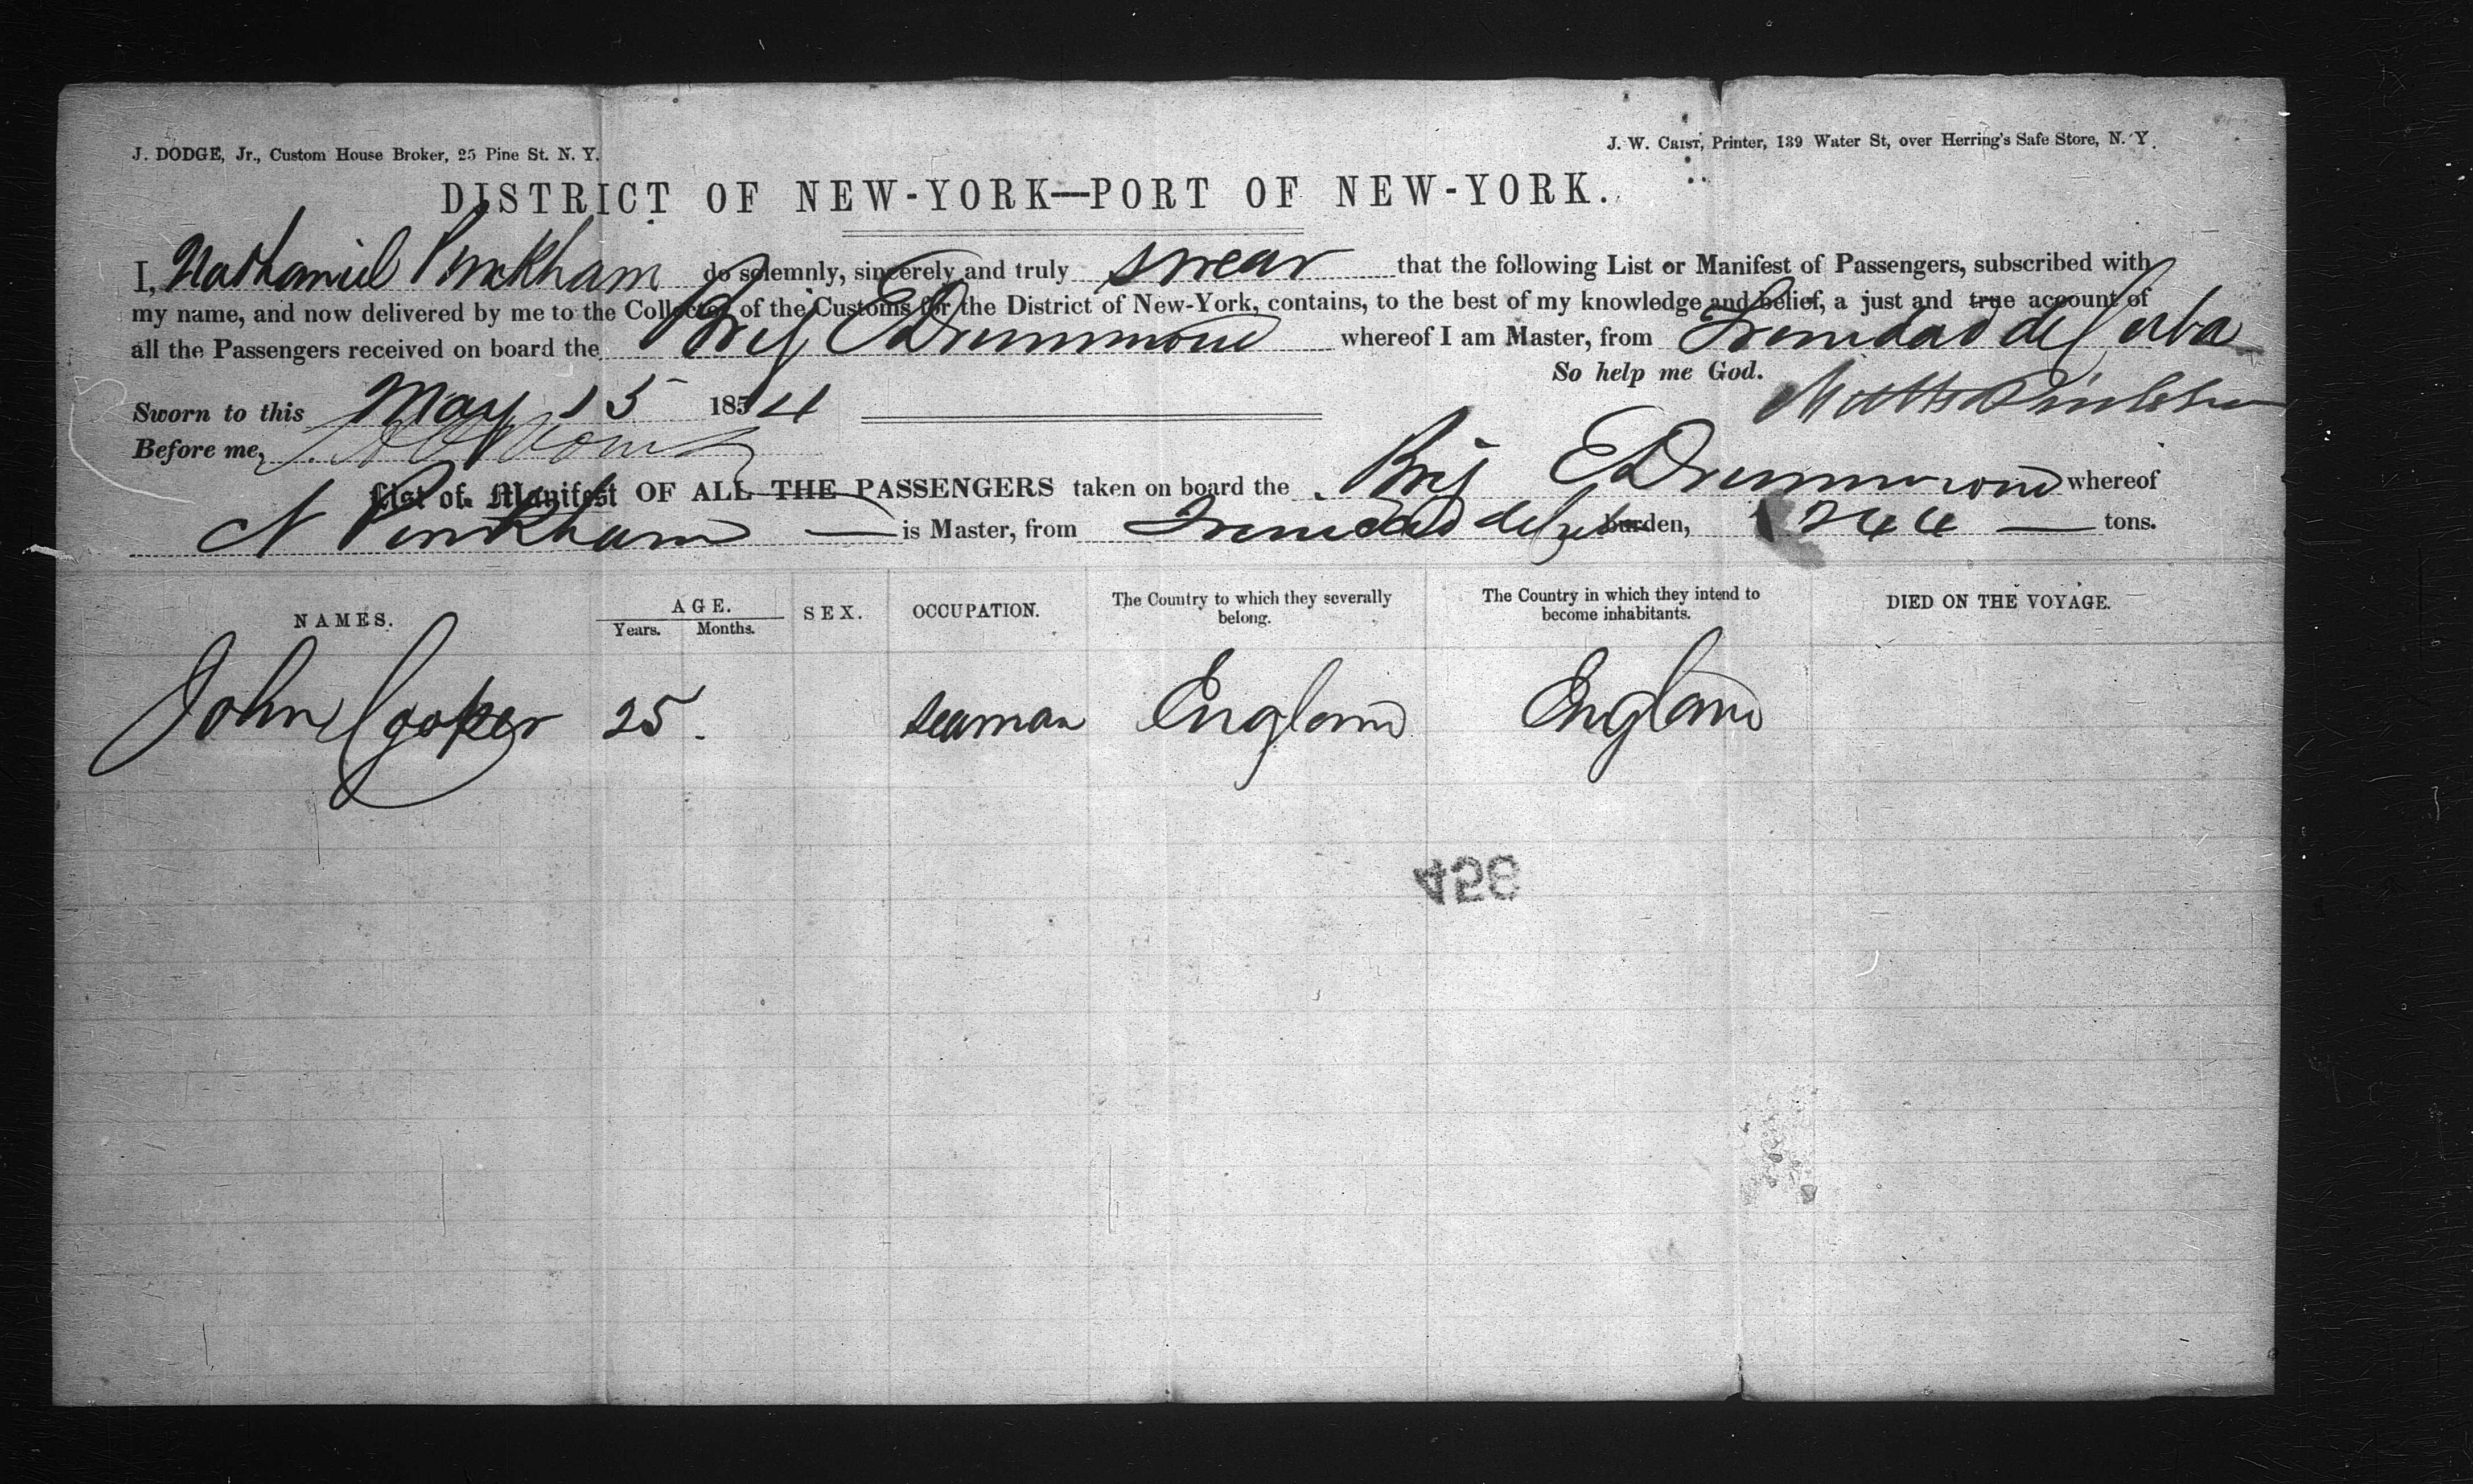 J. DODGE, Jr., Custom House Broker, 25 Pine St. N. Y.
J. W. CRIST, Printer, 139 Water St, over Herring's Safe Store, N. Y.
DISTRICT OF NEW-YORK—PORT OF NEW-YORK.
I, Nathaniel Pinkham do solemnly, sincerely and truly swear that the following List or Manifest of Passengers, subscribed with
my name, and now delivered by me to the Collector of the Customs for the District of New-York, contains, to the best of my knowledge and belief, a just and true account of
all the Passengers received on board the Brig E Drummond whereof I am Master, from Trinidad de Cuba
So help me God.
Sworn to this May 15 1854
Before me,
List or Manifest OF ALL THE PASSENGERS taken on board the Brig E Drummond whereof
N Pinkham is Master, from Trinidad de Cuba burden, 244 tons.
NAMES. AGE. SEX. OCCUPATION. The Country to which they severally belong. The Country in which they intend to become inhabitants. DIED ON THE VOYAGE.
Years. Months.
John Cooper 25. seaman England England
456